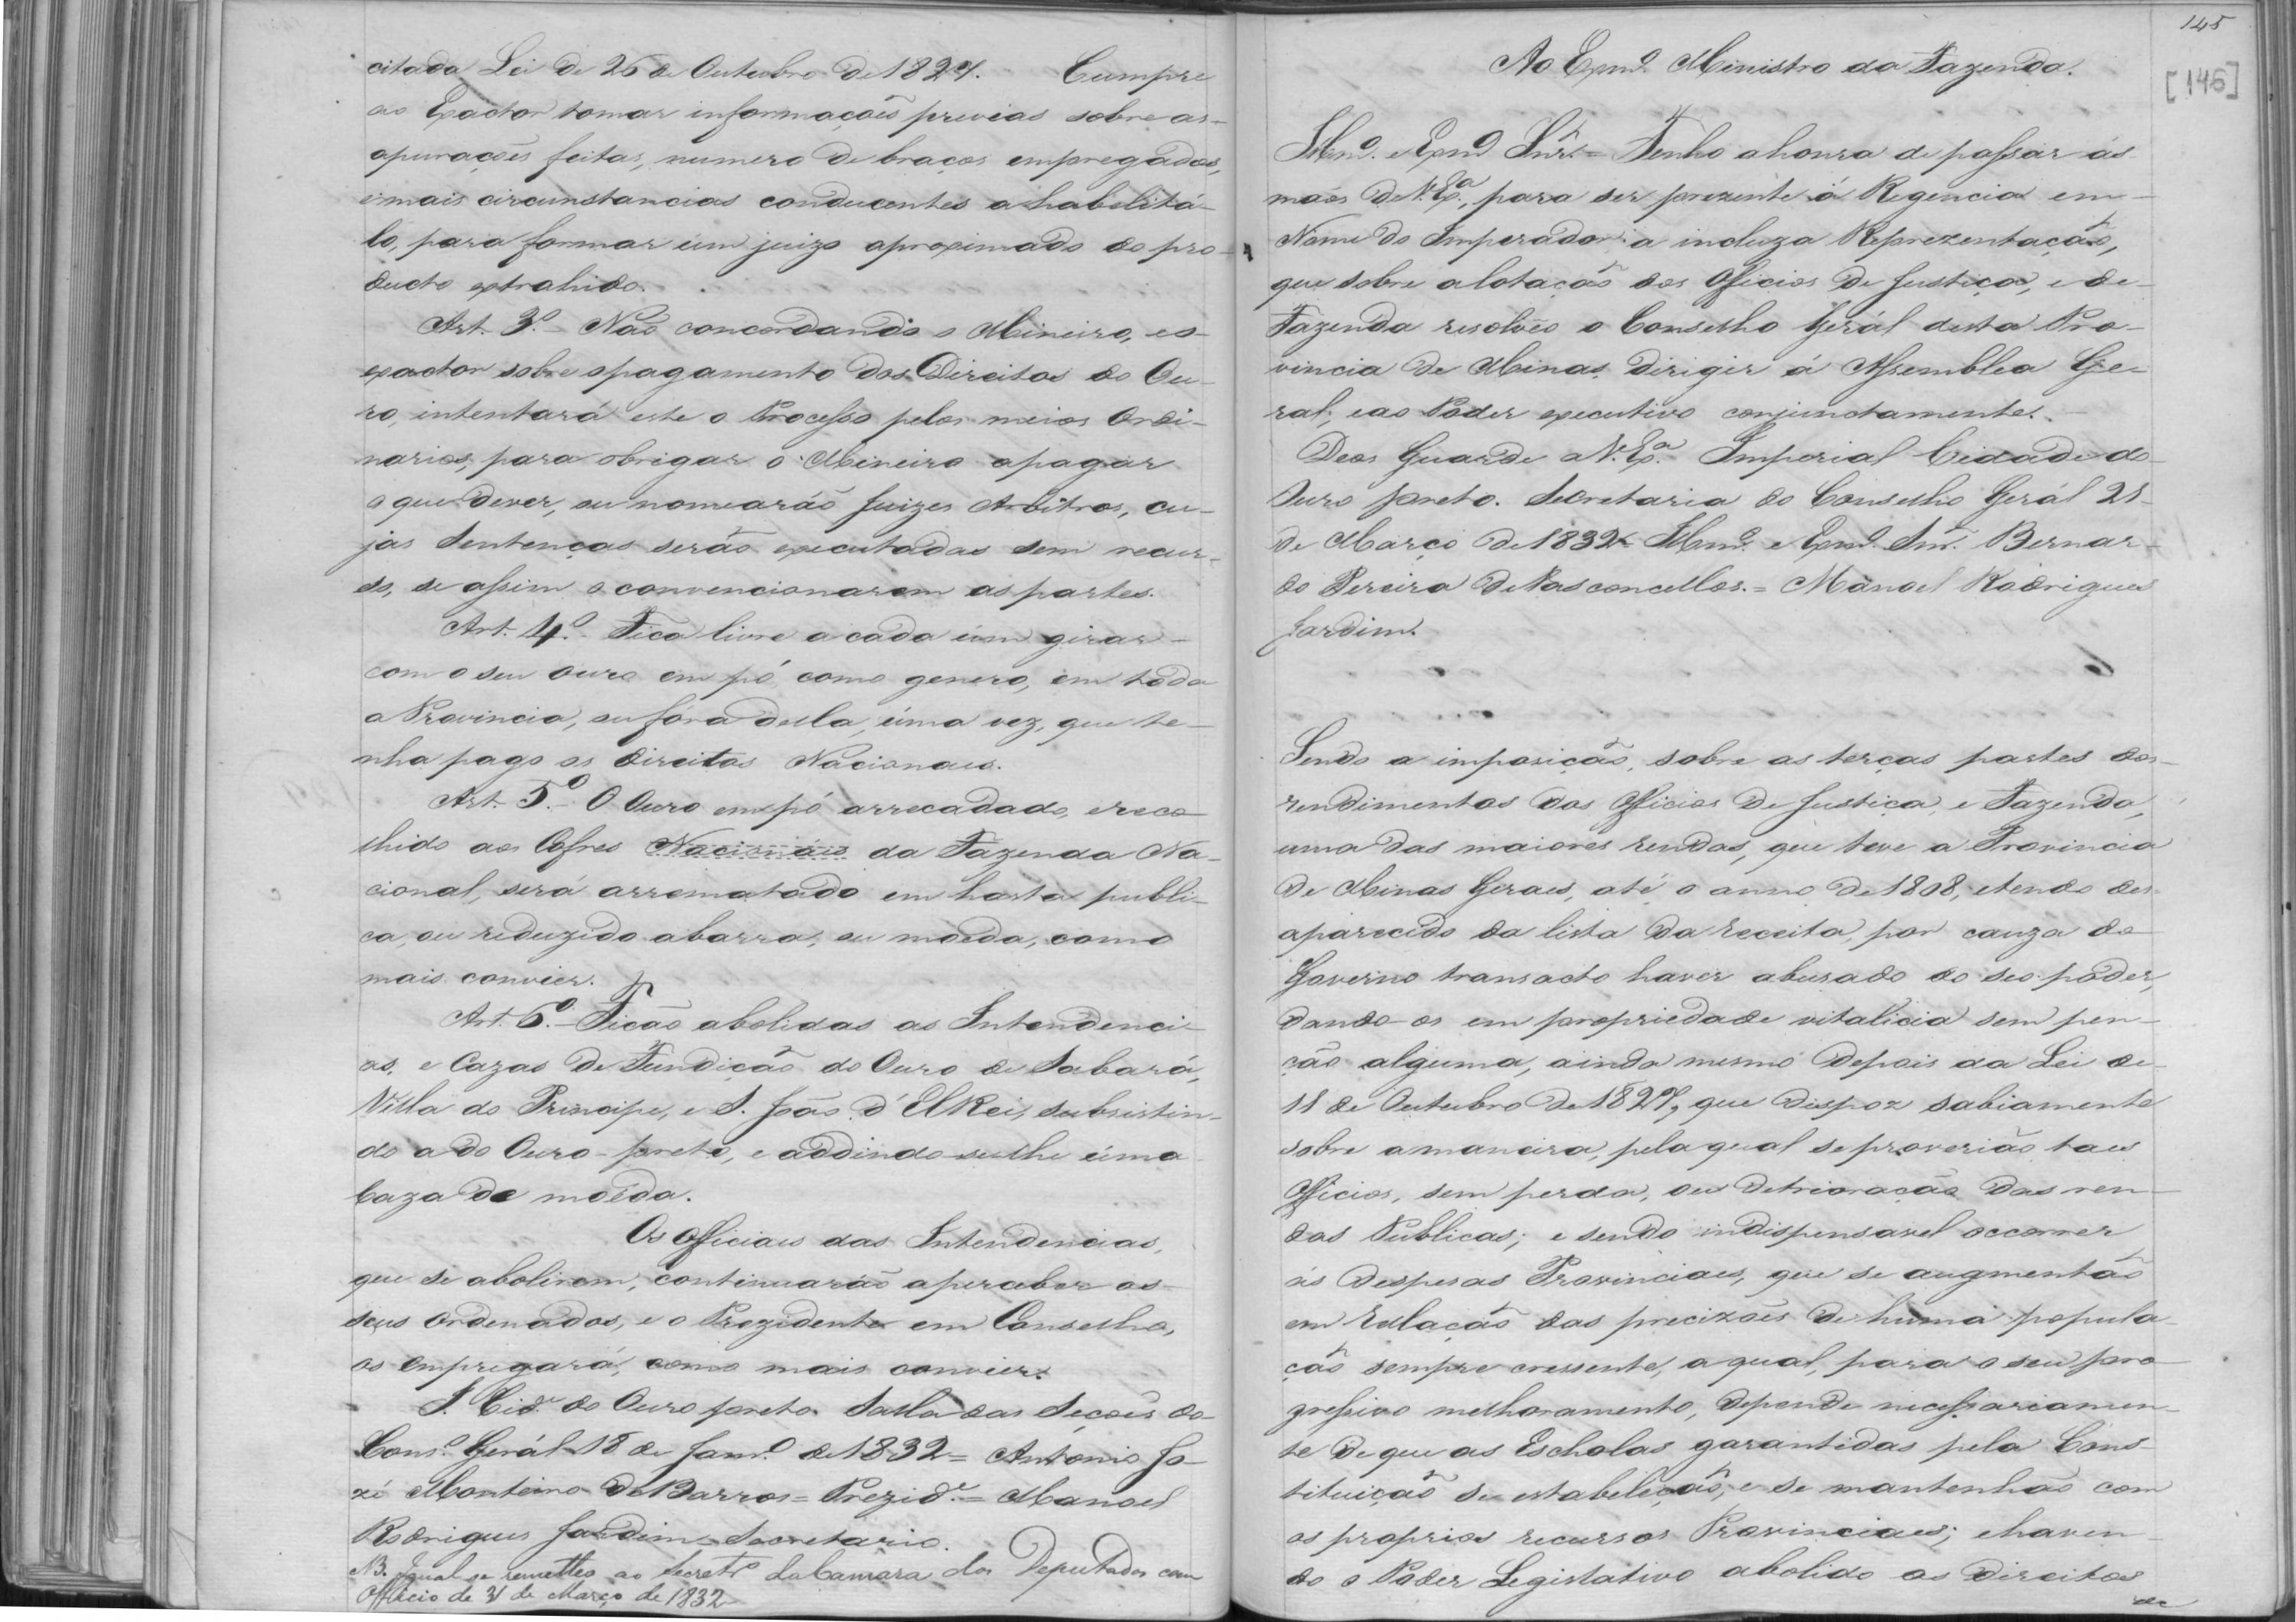 citada Lei de 26 de Outubro de 1827. Cumpre
ao Exactor tomar informações previas sobre as
apurações feitas, numero de braços empregados,
e mais circunstancias conducentes a habelitá-
lo, para formar úm juizo aproximado do pro-
ducto extrahido.
Art. 3º - Não concordando o Mineiro, e o
exactor sobre o pagamento dos Direitos do Ou-
ro, intentará este o Processo pelos meios Ordi-
narios, para obrigar o Mineiro a pagar
o que dever, ou nomearáõ Juizes Arbitros, cu-
jas Sentenças seráõ executadas sem recur-
so, se assim o convencionarem as partes.
Art. 4º - Fica livre a cada úm girar
com o seu ouro em pó, como genero, em toda
a Provincia, ou fóra della, úma vez, que te-
nha pago os direitos Nacionaes.
Art. 5º - O Ouro em pó arrecadado, e reco-
lhido aos Cofres Nacionáes da Fazenda Na-
cional, será arrematado em hasta publi-
ca, ou reduzido a barra, ou moeda, como
mais convier.
Art. 6º - Ficão abolidas as Intendenci-
as, e Cazas de Fundição do Ouro de Sabará,
Villa do Principe, e S. João d'El Rei, subsistin-
do a do Ouro-preto, e addindo-se-lhe úma
Caza de moeda.
Os Officiaes das Intendencias,
que se abolirem, continuaráõ a perceber os
seus ordenados, e o Prezidente em Conselho,
os empregará, como mais convier.
I. Cidᵉ do Ouro preto Salla das Seçoẽs do
Consº Gerál 18 de Janrº de 1832 = Antonio Jo-
zé Monteiro de Barros = Prezidᵉ = Manoel
Rodrigues Jardim Secretario.
NB. Igual se remetteo ao Secretº da Camara dos Deputados com
Officio de 21 de Março de 1832
145
[145]
Ao Exmº Ministro da Fazenda.
Illmº e Exmº Snr. = Tenho a honra de passar ás
mãos de V. Exª, para ser prezente á Regencia em
Nome do Imperador a incluza Reprezentação,
que sobre a lotação dos Officios de Justiça, e de
Fazenda resolvêo o Conselho Gerál desta Pro-
vincia de Minas dirigir á Assemblea Ge-
ral, e ao Poder executivo conjunctamente.
Deos Guarde a V. Exª Imperial Cidade do
Ouro preto. Secretaria do Conselho Gerál 21
de Março de 1832 - Illmº e Exmº Snr. Bernar-
do Pereira de Vasconcellos. = Manoel Rodrigues
Jardim.
Sendo a imposição, sobre as terças partes dos
rendimentos dos Officios de Justiça, e Fazenda,
uma das maiores rendas, que teve a Provincia
de Minas Geraes, até o anno de 1808, e tendo des-
aparecido da lista da receita, por cauza do
Governo transacto haver abusado do seo poder,
dando-os em propriedade vitalicia sem pen-
ção alguma, ainda mesmo depois da Lei de
11 de Outubro de 1827, que dispoz sabiamente
sobre a maneira, pela qual se proverião taes
Officios, sem perda, ou detrioração das ren-
das Publicas; e sendo indispensavel occorrer
ás despesas Provinciaes, que se augmentão
em relação das precizoẽs de huma popula-
ção sempre cressente, a qual, para o seu pro-
gressivo melhoramento, depende necessariamen-
te de que as Escholas garantidas pela Cons-
tituição se estabeleção, e se mantenhão com
os proprios recursos Provinciaes; e haven-
do o Poder Legistativo abolido os direitos
de